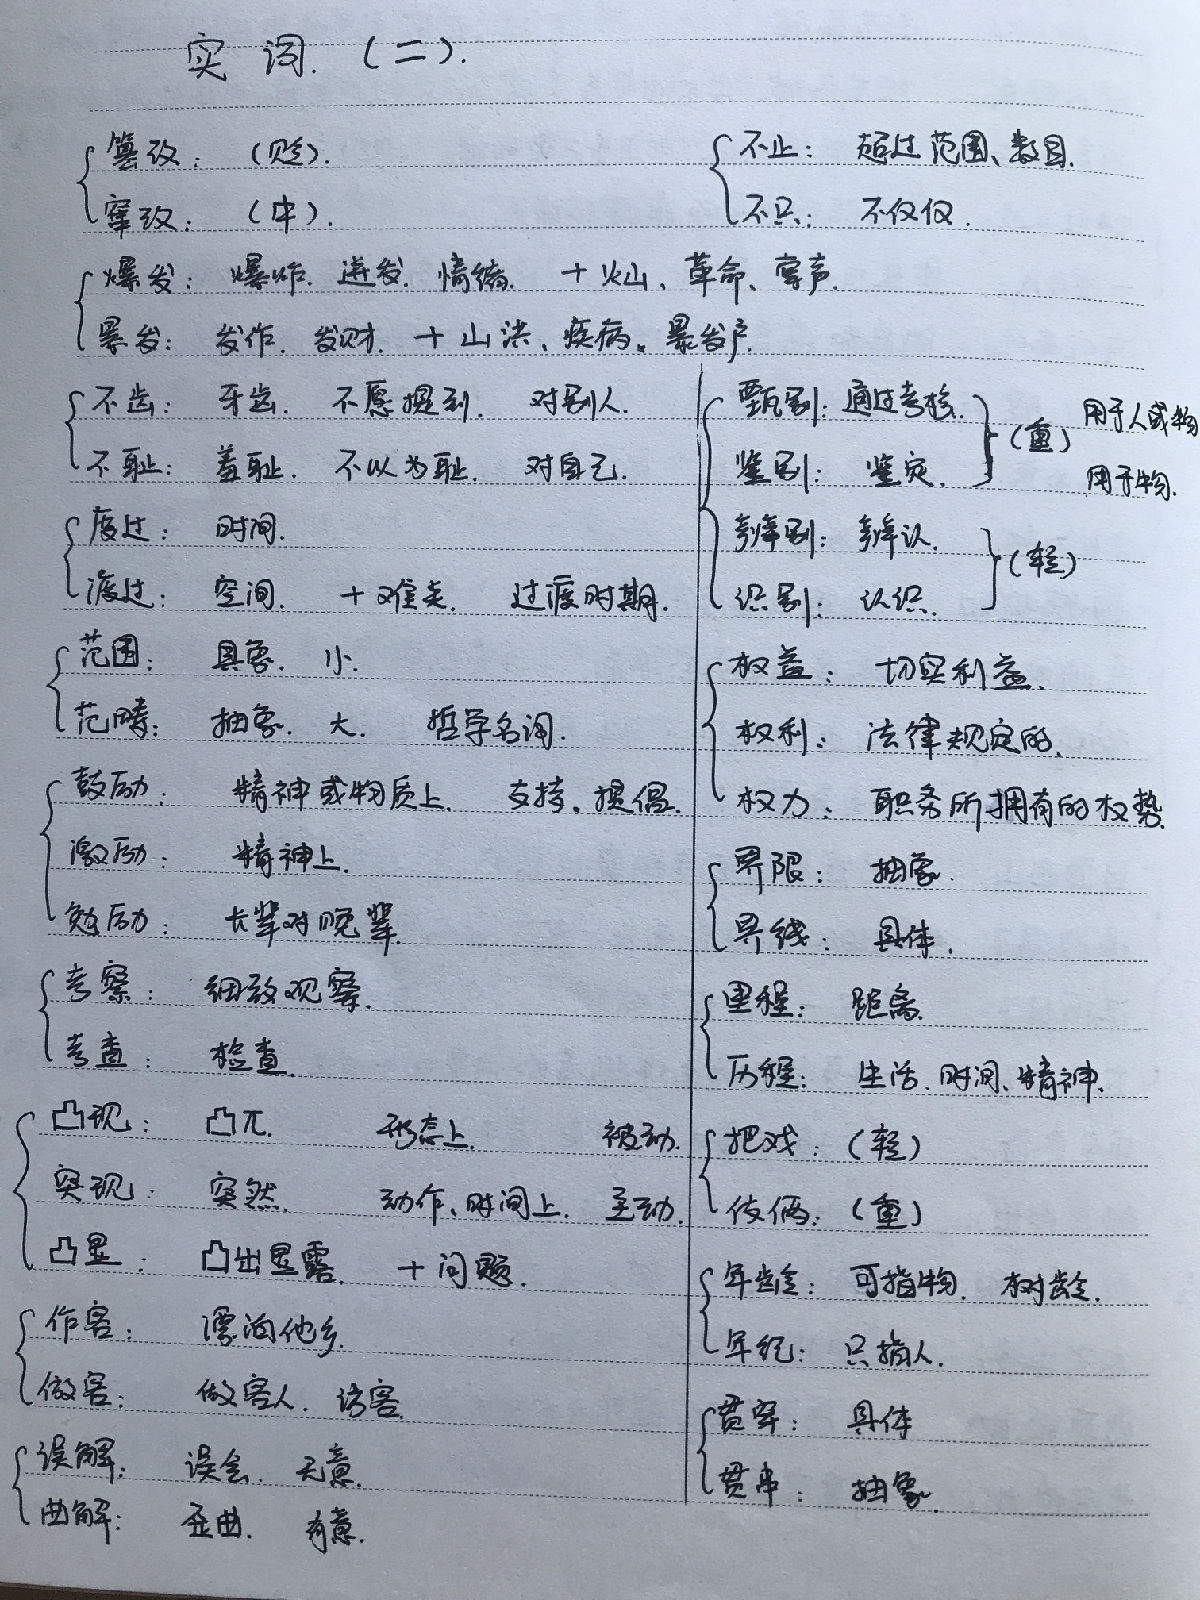 实词（二）.
篡改：（贬）.
窜改：（中）.
不止：超过范围、数目.
不只：不仅仅.
爆发：爆炸. 迸发. 情绪. ＋火山、革命、掌声.
暴发：发作. 发财. ＋山洪、疾病、暴发户.
不齿：牙齿. 不愿提到. 对别人.
不耻：羞耻. 不以为耻. 对自己.
度过：时间.
渡过：空间. ＋难关. 过渡时期.
范围：具象. 小.
范畴：抽象. 大. 哲学名词.
鼓励：精神或物质上. 支持、提倡.
激励：精神上.
勉励：长辈对晚辈.
考察：细致观察.
考查：检查.
凸现：凸兀. 形态上. 被动.
突现：突然. 动作、时间上. 主动.
凸显：凸出显露. ＋问题.
作客：漂泊他乡.
做客：做客人. 访客.
误解：误会. 无意.
曲解：歪曲. 有意.
甄别：通过考核.（重）用于人或物
鉴别：鉴定. 用于物.
辨别：辨认.（轻）
识别：认识.
权益：切实利益.
权利：法律规定的.
权力：职务所拥有的权势.
界限：抽象.
界线：具体.
里程：距离.
历程：生活、时间、精神.
把戏：（轻）
伎俩：（重）
年龄：可指物. 树龄.
年纪：只指人.
贯穿：具体
贯串：抽象.